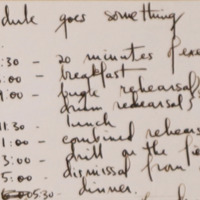 dule goes something
:30 - 20 minutes of exe
:00 - breakfast
9:00 - bugle rehearsal
drum rehearsal }
11:30 - lunch
1:00 - combined rehears
3:00 - drill on the fie
5:00 - dismissal from
05:30 - dinner.